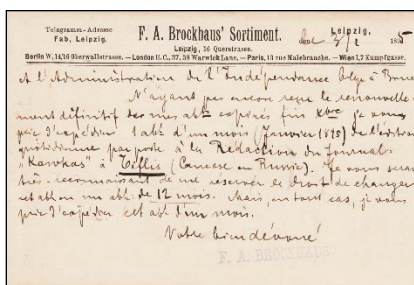 Telegramm-Adresse
Fab, Leipzig.
F. A. Brockhaus' Sortiment.
Leipzig, 16 Querstrasse.
Leipzig,
189
Berlin W, 14/16 Oberwallstrasse. — London E. C., 37, 38 Warwick Lane. — Paris, 13 rue Malebranche. — Wien I, 7 Kumpfgasse.
et l'Administration de l'Indépendance belge à
N'ayant pas encore reçu le renouvelle-
ment définitif des mes abts expirés fin Xbre je vous
prie d'expédier 1 abt d'un mois (Janvier 1895) de l'édition
quotidienne par poste à la Rédaction du Journal
"Kawkas" à Tiflis (Caucase en Russie). Je vous serai
très reconnaissant de me réserver le droit de changer
cet abt en un abt de 12 mois. Mais, en tout cas, je vous
prie d'expédier cet abt d'un mois.
Votre bien dévoué
F. A. BROCKHAUS